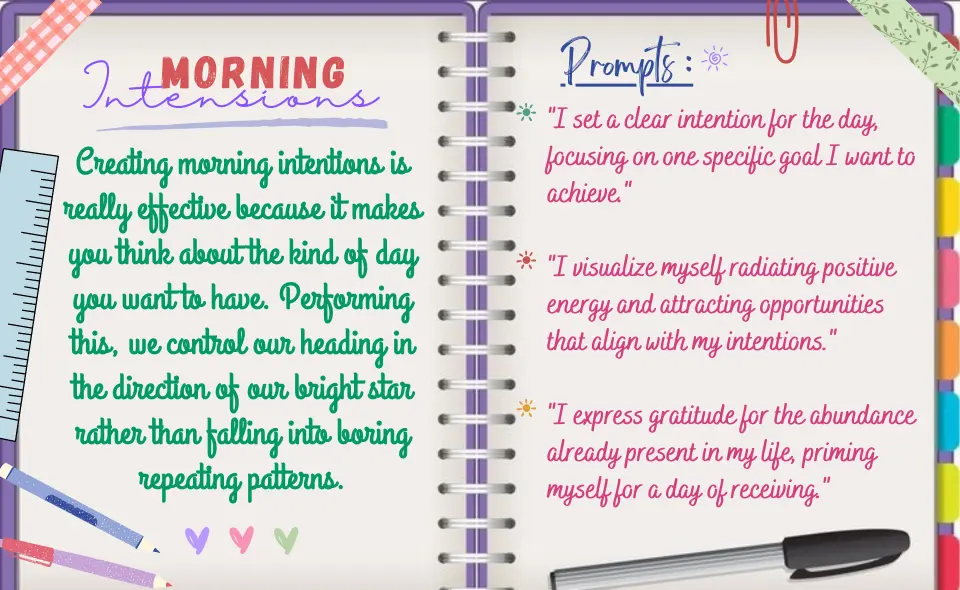 MORNING
Intensions
Creating morning intentions is
really effective because it makes
you think about the kind of day
you want to have. Performing
this, we control our heading in
the direction of our bright star
rather than falling into boring
repeating patterns.
Prompts :
"I set a clear intention for the day,
focusing on one specific goal I want to
achieve."
"I visualize myself radiating positive
energy and attracting opportunities
that align with my intentions."
"I express gratitude for the abundance
already present in my life, priming
myself for a day of receiving."